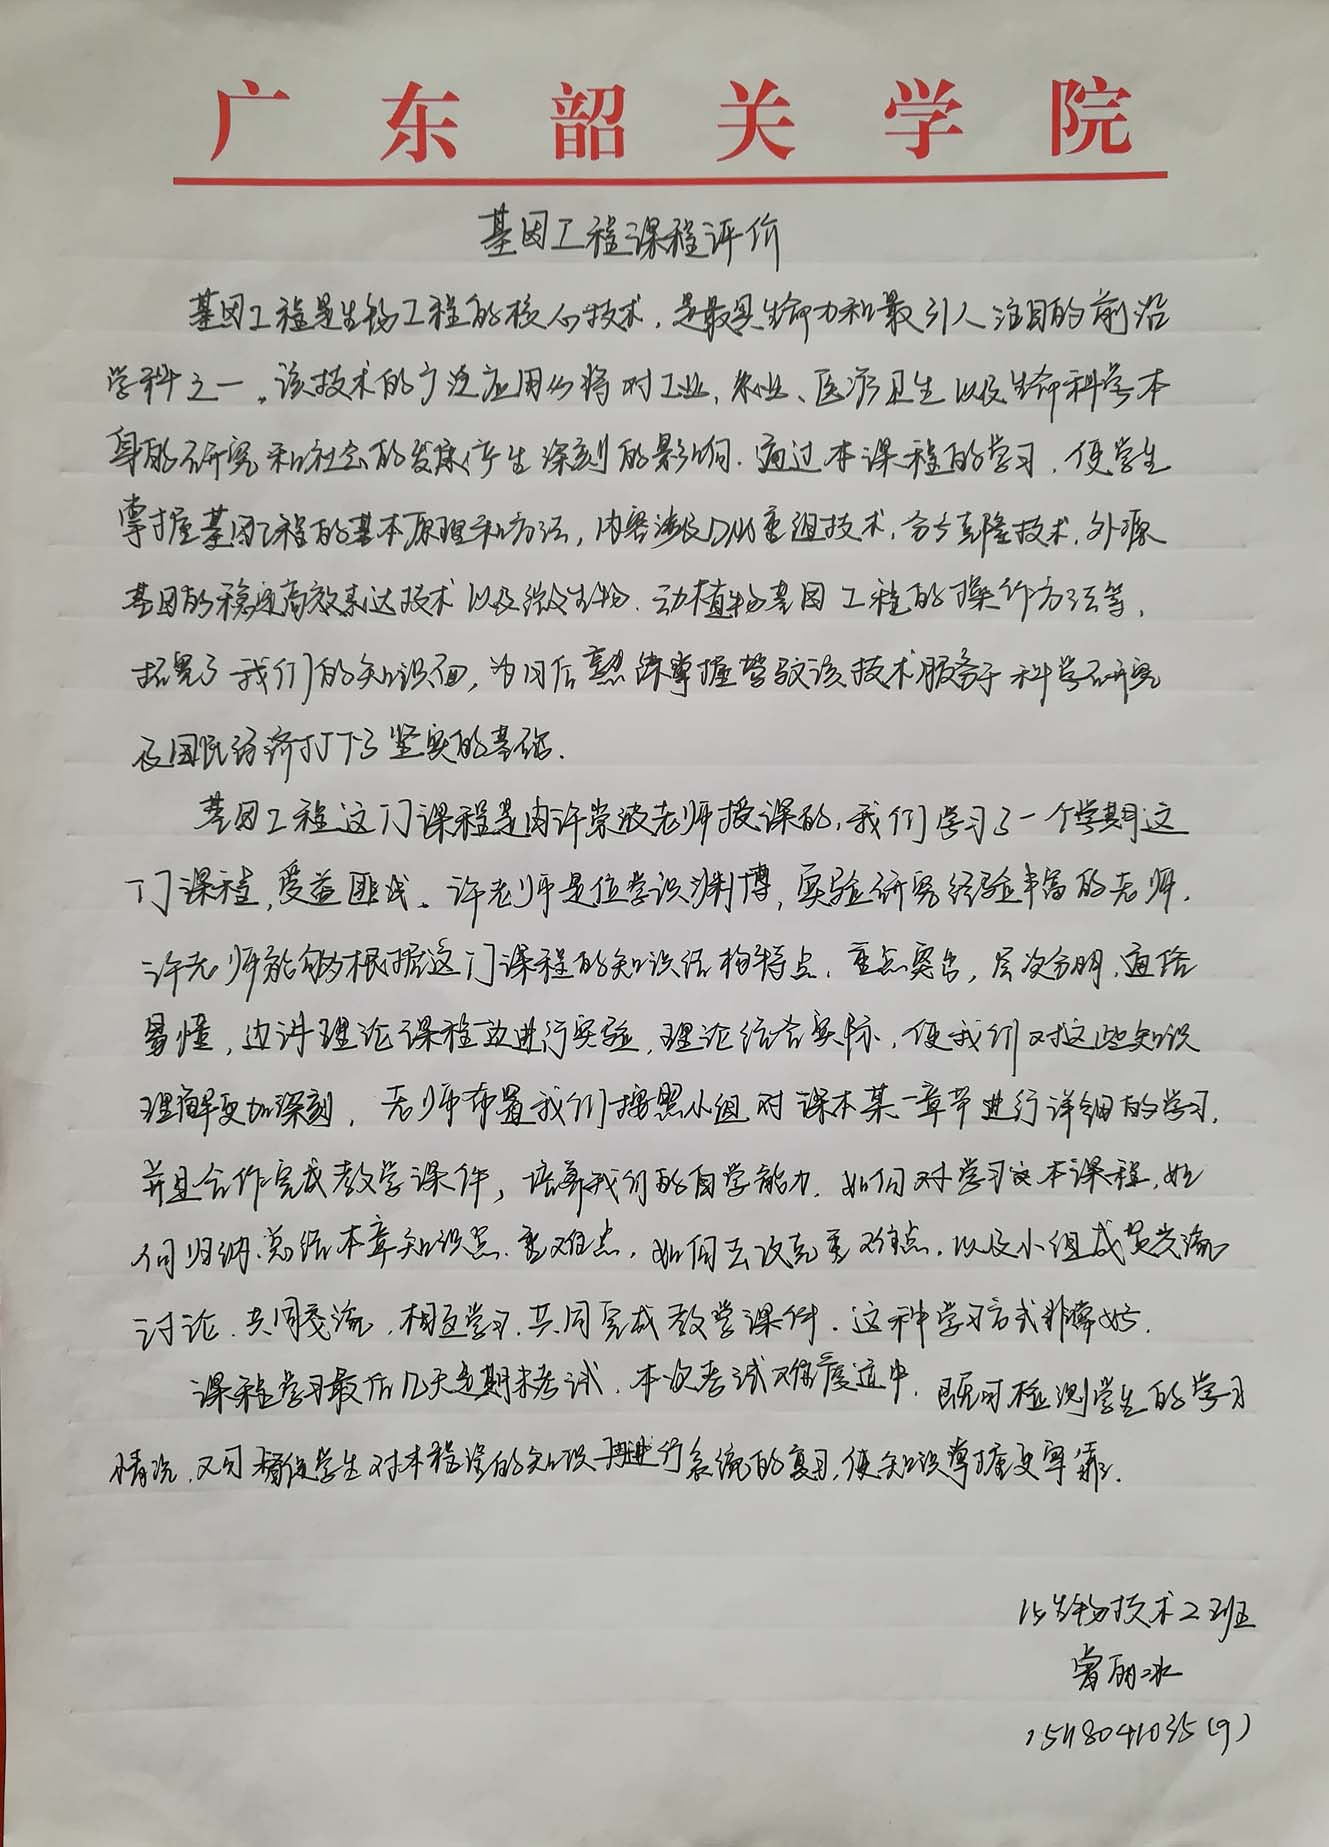 广东韶关学院
基因工程课程评价
基因工程是生物工程的核心技术，是最具生命力和最引人注目的前沿
学科之一。该技术的广泛应用必将对工业、农业、医疗卫生以及生命科学本
身的研究和社会的发展产生深刻的影响。通过本课程的学习，使学生
掌握基因工程的基本原理和方法，内容涉及DNA重组技术，分子克隆技术，外源
基因的稳定高效表达技术以及微生物、动植物基因工程的操作方法等，
拓宽了我们的知识面，为日后熟练掌握驾驭该技术服务于科学研究
及国民经济打下了坚实的基础。
基因工程这门课程是由许崇波老师授课的，我们学习了一个学期这
门课程，受益匪浅。许老师是位学识渊博，实验研究经验丰富的老师。
许老师能够根据这门课程的知识结构特点，重点突出，层次分明，通俗
易懂，边讲理论课程边进行实验，理论结合实际，使我们对这些知识
理解更加深刻，老师布置我们按照小组对课本某一章节进行详细的学习，
并且合作完成教学课件，培养我们的自学能力，如何对学习这本课程，如
何归纳、总结本章知识点、重难点，如何去攻克重难点，以及小组成员交流
讨论、共同交流、相互学习、共同完成教学课件。这种学习方式非常好。
课程学习最后几天是期末考试，本次考试难度适中，既可检测学生的学习
情况，又可督促学生对本程课的知识进行系统的复习，使知识掌握更牢靠。
15生物技术2班
曾丽冰
15118041035(9)